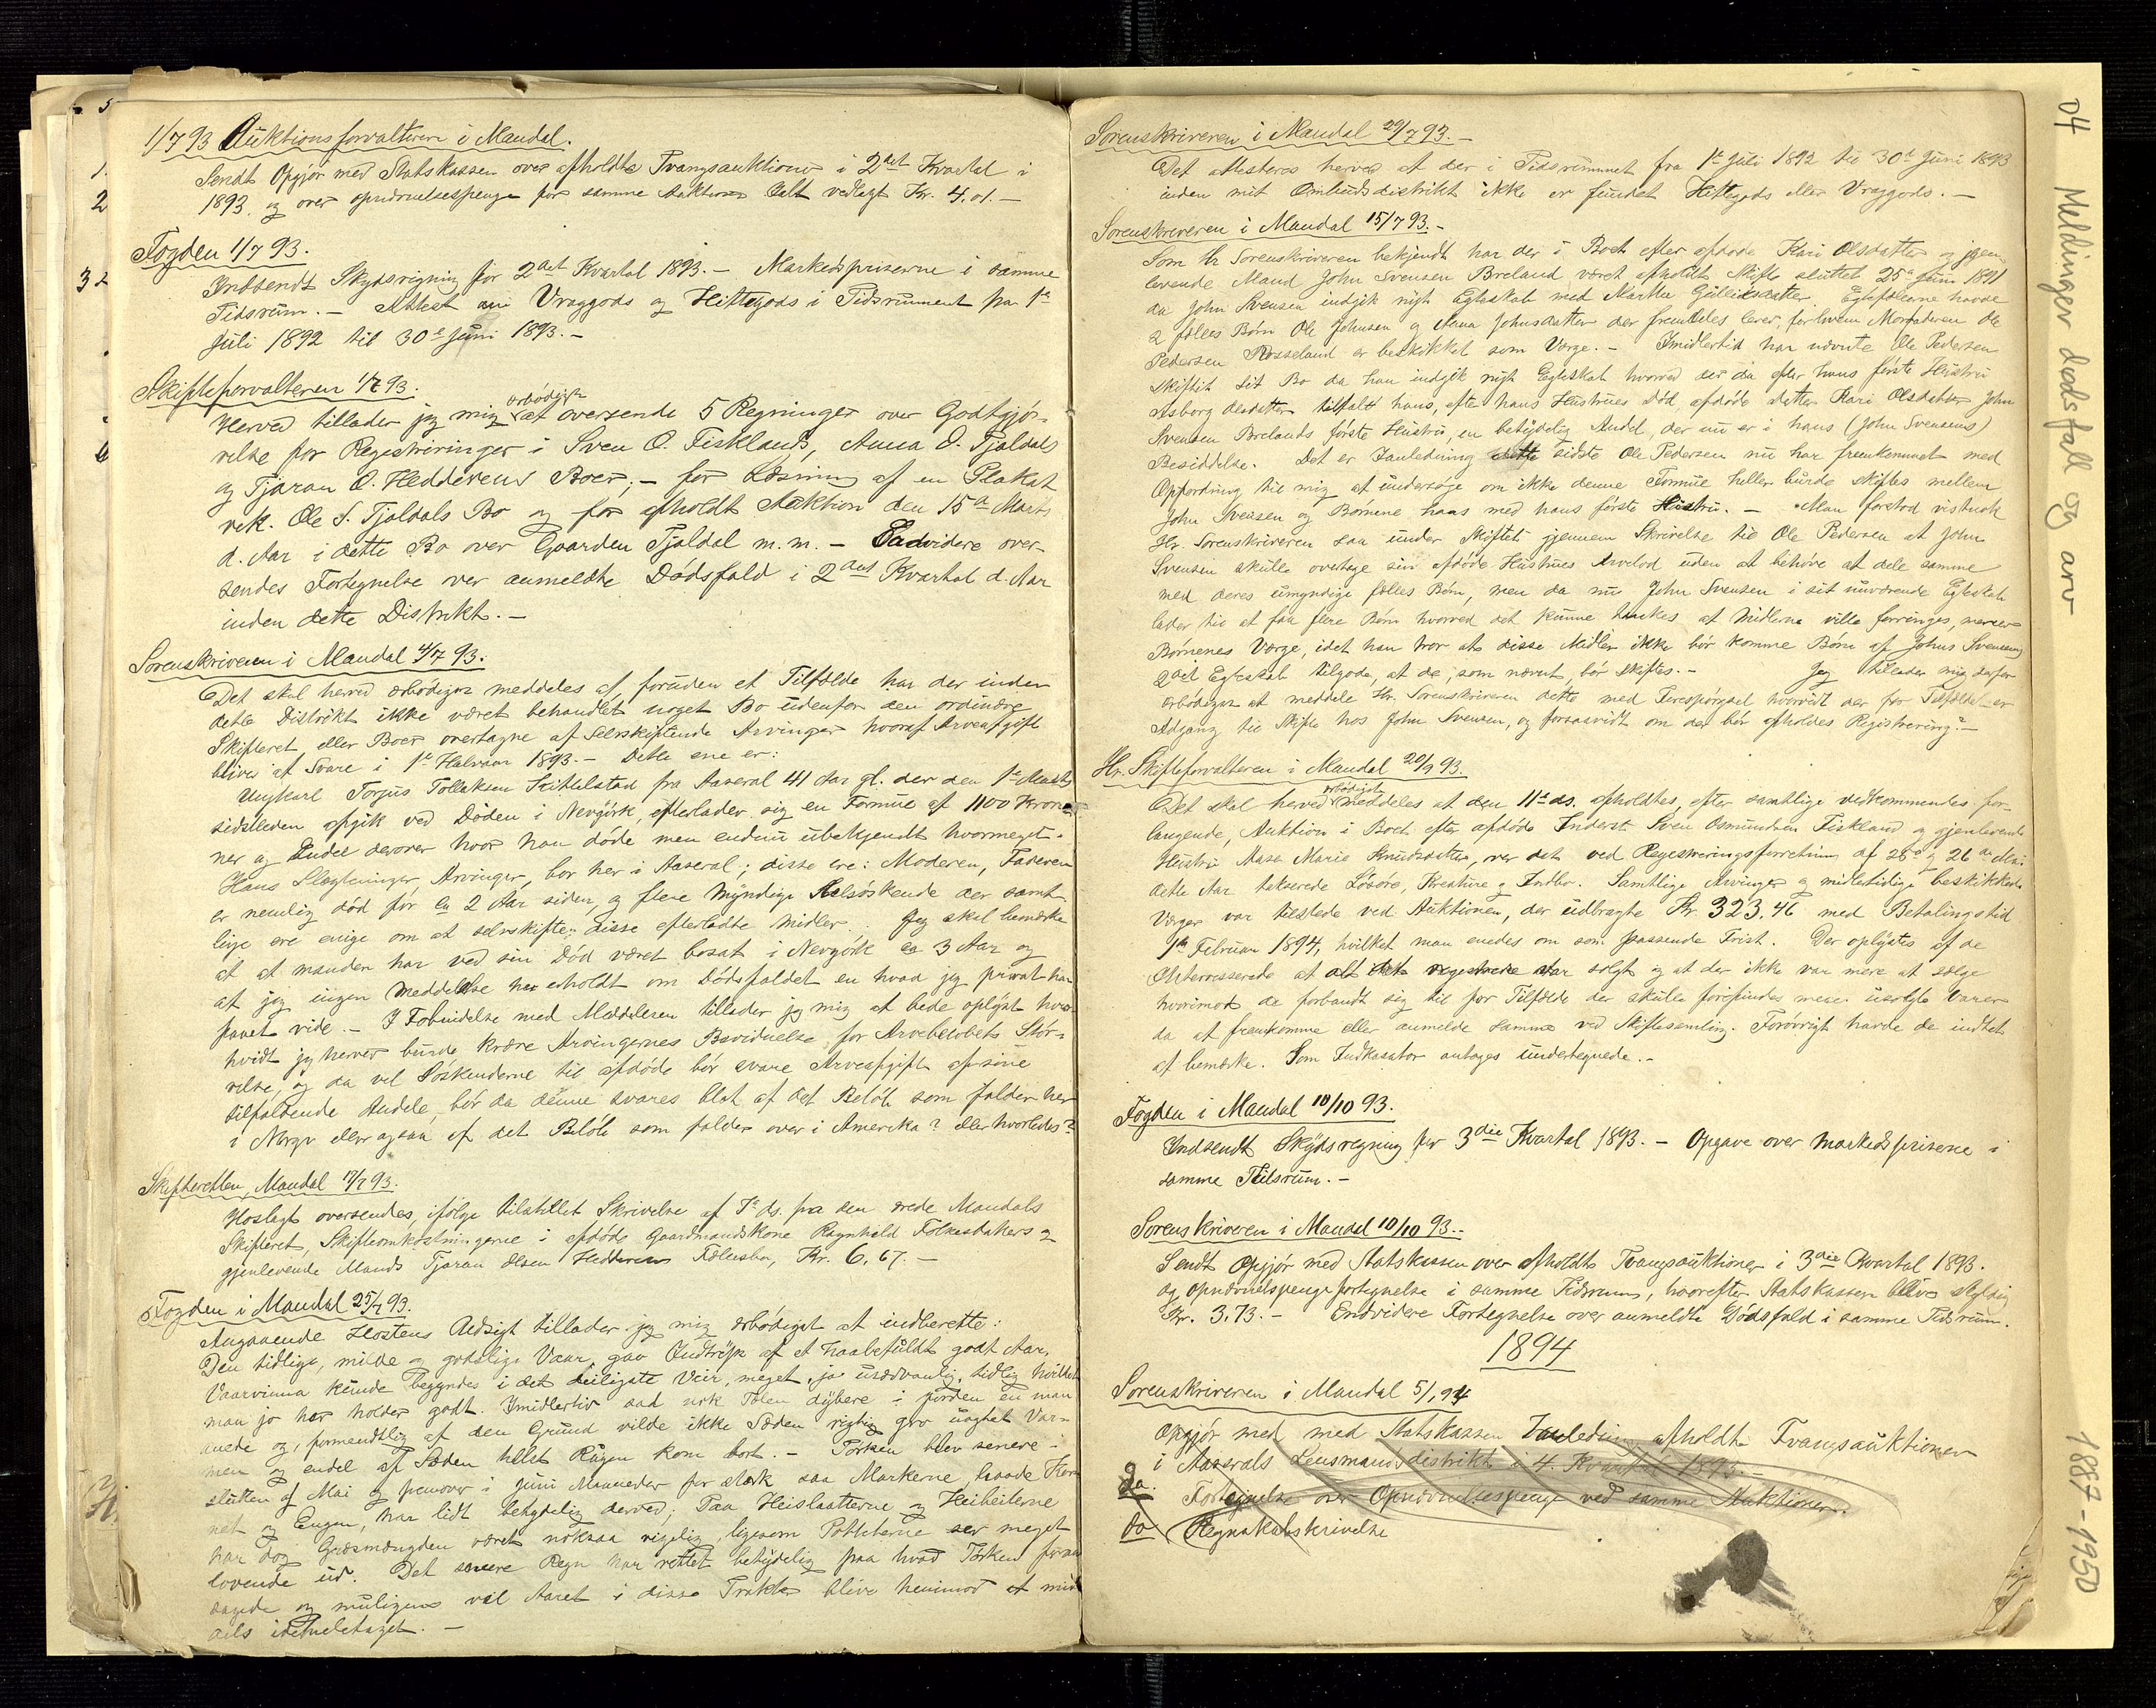 1/7 93 Auktionsforvalteren i Mandal.
Sendt Opgjør med Statskassen over afholdte Tvangsauktioner i 2det Kvartal i
1893, og over opudvuelsespenge for samme Auktioner Ialt vedlagt Kr. 4.01.-
Fogden 1/7 93.
Indsendt Skydsregning for 2det Kvartal 1893.- Markedspriserne i samme
Tidsrum.- Attest om Vraggods og Hittegods i Tidsrummet fra 1ste
Juli 1892 til 30te Juni 1893.-
Skifteforvalteren 1/7 93.
Herved tillader jeg mig ærbødigst at oversende 5 Regninger over Godtgjø-
relse for Registreringer i Sven O. Fisklands, Anna O. Tjaldals
og Tjøran O. Hedderens Boer;- for Læsning af en Plakat
vek. Ole S. Tjaldals Bo og for afholdt Auktion den 15de Marts
d. Aar i dette Bo over Gaarden Tjaldal m.m.- Endvidere over-
sendes Fortegnelse over anmeldte Dødsfald i 2det Kvartal d. Aar
inden dette Distrikt.-
Sorenskriveren i Mandal 4/7 93.
Det skal herved ærbødigst meddeles at, foruden et Tilfælde har der inden
dette Distrikt ikke været behandlet noget Bo udenfor den ordinære
Skifteret, eller Boer overtagne af selvskiftende Arvinger hvoraf Arveafgift
bliver at svare i 1ste Halvaar 1893.- Dette ene er:
Ungkarl Torjus Tollaksen Kittelstad fra Aaseral 41 Aar gl. der den 1ste Marts
sidstleden afgik ved Døden i Nevyork, efterlader sig en Formue af 1100 Kroner
ner og Endel derover hvor han døde men endnu ubekjendt hvormeget.
Hans Slægtninger, Arvinger, bor her i Aaseral; disse ere: Moderen, Faderen
er nemlig død for ca 2 Aar siden, og flere myndige Helsøskende der samt-
lige ere enige om at selvskifte disse efterladte Midler. Jeg skal bemærke
at at manden har ved sin Død været bosat i Nevyork ca 3 Aar og
at jeg ingen Meddelelse har erholdt om Dødsfaldet en hvad jeg privat har
faaet vide.- I Forbindelse med Meddelesen tillader jeg mig at bede oplyst hvor-
hvidt jeg herved burde kræve Arvingernes Bevidnelse for Arvebeløbets Stør-
relse, og da vel Søskenderne til afdøde bør svare Arveafgift af sine
tilfaldende Andele, bør da denne svares blot af det Beløb som falder her
i Norge eller ogsaa af det Beløb som falder over i Amerika? eller hvorledes?
Skifteretten, Mandal 17/7 93.
Hoslagt oversendes, ifølge tilstillet Skrivelse af 7de ds. fra den nede Mandals
Skifteret, Skifteomkostningerne i afdøde Gaardmandskone Ragnhild Folkesdatters og
gjenlevende Mands Tjøran Olsen Hedderens Fællesbo, Kr. 6,67.-
Fogden i Mandal 25/7 93.
Angaaende Høstens Udsigt tillader jeg mig ærbødigst at indberette:
Den tidlige, milde og godslige Vaar gav Indtryk af et haabefuldt godt Aar,
Vaarvinna kunde begyndes i det deiligste Veir, meget, ja usædvanlig, tidlig hvilket
man jo her holder godt. Imidlertid sad nok Tælen dybere i Jorden en man
anede og, formendtlig af den Grund vilde ikke Sæden rigtig gro uagtet Var-
men og endel af Sæden helst Rugen kom bort.- Tørken blev senere-
slutten af Mai og fremover i Juni Maaneder for stærk saa Markerne, baade Hem
net og Engen, har lidt betydelig derved; Paa Heislaatterne og Heibeiterne
har dog Græsmængden været noksaa rigelig, ligesom Poteterne ser meget
lovende ud. Det senere Regn har rettet betydelig paa hvad Tørken foraar
sagede og muligens vil Aaret i disse Trakter blive henimod et mid
dels idetheletaget.-
Sorenskriveren i Mandal 29/7 93.-
Det attesteres herved at der i Tidsrummet fra 1ste Juli 1892 til 30te Juni 1893
inden mit Ombudsdistrikt ikke er fundet Hittegods eller Vraggods.-
Sorenskriveren i Mandal 15/7 93.-
Som Hr Sorenskriveren bekjendt har der i Boet efter afdøde Kari Olsdatter og gjen-
levende Mand John Svensen Breland været afholdt Skifte sluttet 25de Juni 1891
da John Svensen indgik nyt Egteskab med Marthe Gulleiksdatter. Egtefolkene havde
2 fælles Børn Ole Johnsen og Anna Johnsdatter der fremdeles lever, for hvem Morfaderen Ole
Pedersen Rosseland er beskikket som Værge.- Imidlertid har nævnte Ole Pedersen
skiftet sit Bo da han indgik nyt Egteskab hvorved der da efter hans første Hustru
Asborg Olsdatter tilfaldt hans, efter hans Hustrues Død afdøde datter Kari Olsdatter John
Svensen Brelands første Hustru, en betydelig Andel, der nu er i hans (John Svensens)
Besiddelse. Det er Ianledning dette sidste Ole Pedersen nu har fremkommet med
Opfordring til mig at undersøge om ikke denne Formue heller burde skiftes mellem
John Svensen og Børnene hans med hans første Hustru.- Man forstod vistnok
Hr. Sorenskriveren saa under Skiftet gjennem Skrivelse til Ole Pedersen at John
Svensen skulle overtage sin afdøde Hustrues Arvelod uden at behøve at dele samme
med deres umyndige fælles Børn, men da nu John Svensen i sit nuværende Egteskab
lader til at faa flere Børn hvorved det kunne tænkes at Midlerne ville forringes, mener
Børnenes Værge, idet han tror at disse Midler ikke bør komme Børn af Johns Svensens
2det Egteskab tilgode, at de, som nævnt, bør skiftes.- Jeg tillader mig derfor
ærbødigst at meddele Hr. Sorenskriveren dette med Forespørgsel hvorvidt der for Tilfældet er
Adgang til Skifte hos John Svensen, og forsaavidt om der bør afholdes Registrering?-
Hr. Skifteforvalteren i Mandal 20/9 93.
Det skal herved ærbødigst meddeles at den 11te ds. afholdtes, efter samtlige vedkommendes for-
langende, Auktion i Boet efter afdøde Inderst Sven Osmundsen Fiskland og gjenlevende
Hustru Aase Marie Knudsdatter, over det ved Registreringsforretning af 25de og 26de Mai
dette Aar takserede Løsøre, Kreature og Indbo. Samtlige Arvinger og midletidige beskikkede
Værger var tilstede ved Auktionen, der udbragte Kr. 323.46 med Betalingstid
1ste Februar 1894, hvilket man enedes om som passende Frist. Der oplystes af de
Interresserede at alt det registrerede var solgt og at der ikke var mere at sælge
hvorimod de forbandt sig til for Tilfælde der skulle forefindes mere usolgte Varer
da at fremkomme eller anmelde samme ved Skiftesamling. Forøvrigt havde de indtet
at bemærke. Som Indkasator antages undertegnede.-
Fogden i Mandal 10/10 93.
Indsendt Skydsregning for 3die Kvartal 1893.- Opgave over Markedspriserne i
samme Tidsrum.-
Sorenskriveren i Mandal 10/10 93.-
Sendt Opgjør med Statskassen over afholdte Tvangsauktioner i 3die Kvartal 1893.
og opudvuelspengefortegnelse i samme Tidsrum, hvorefter Statskassen bliver skyldig
Kr. 3,73.- Endvidere Fortegnelse over anmeldte Dødsfald i samme Tidsrum.
1894
Sorenskriveren i Mandal 5/1 94
Opgjør med med Statskassen Ianledning afholdte Tvangsauktioner
i Aaserals Lensmandsdistrikt i 4. Kvartal 1893.-
do. Fortegnelse over Opudvuelsespenge ved samme Auktioner.
do Regnskabskrivelse
04 Meldinger dødsfall og arv 1887-1950